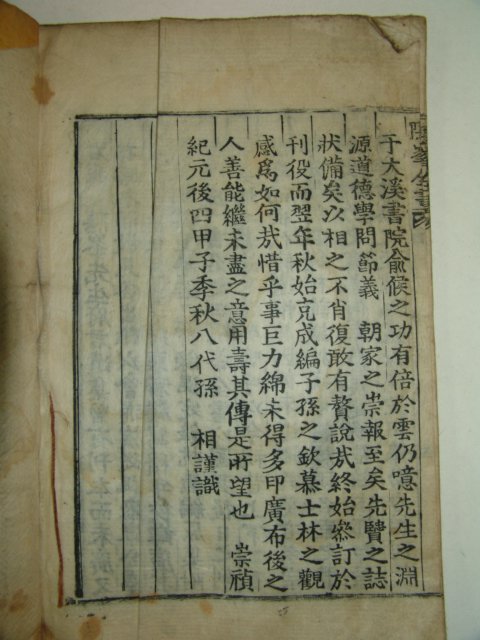 于大溪書院兪候之功有倍於雲仍噫先生之淵
源道德學問節義 朝家之崇報至矣先賢之誌
狀備矣以相之不肖復敢有贅說哉終始叅訂於
刊役而翌年秋始克成編子孫之欽慕士林之觀
感爲如何哉惜乎事巨力綿未得多印廣布後之
人善能繼未盡之意用壽其傳是所望也 崇禎
紀元後四甲子季秋八代孫 相謹識